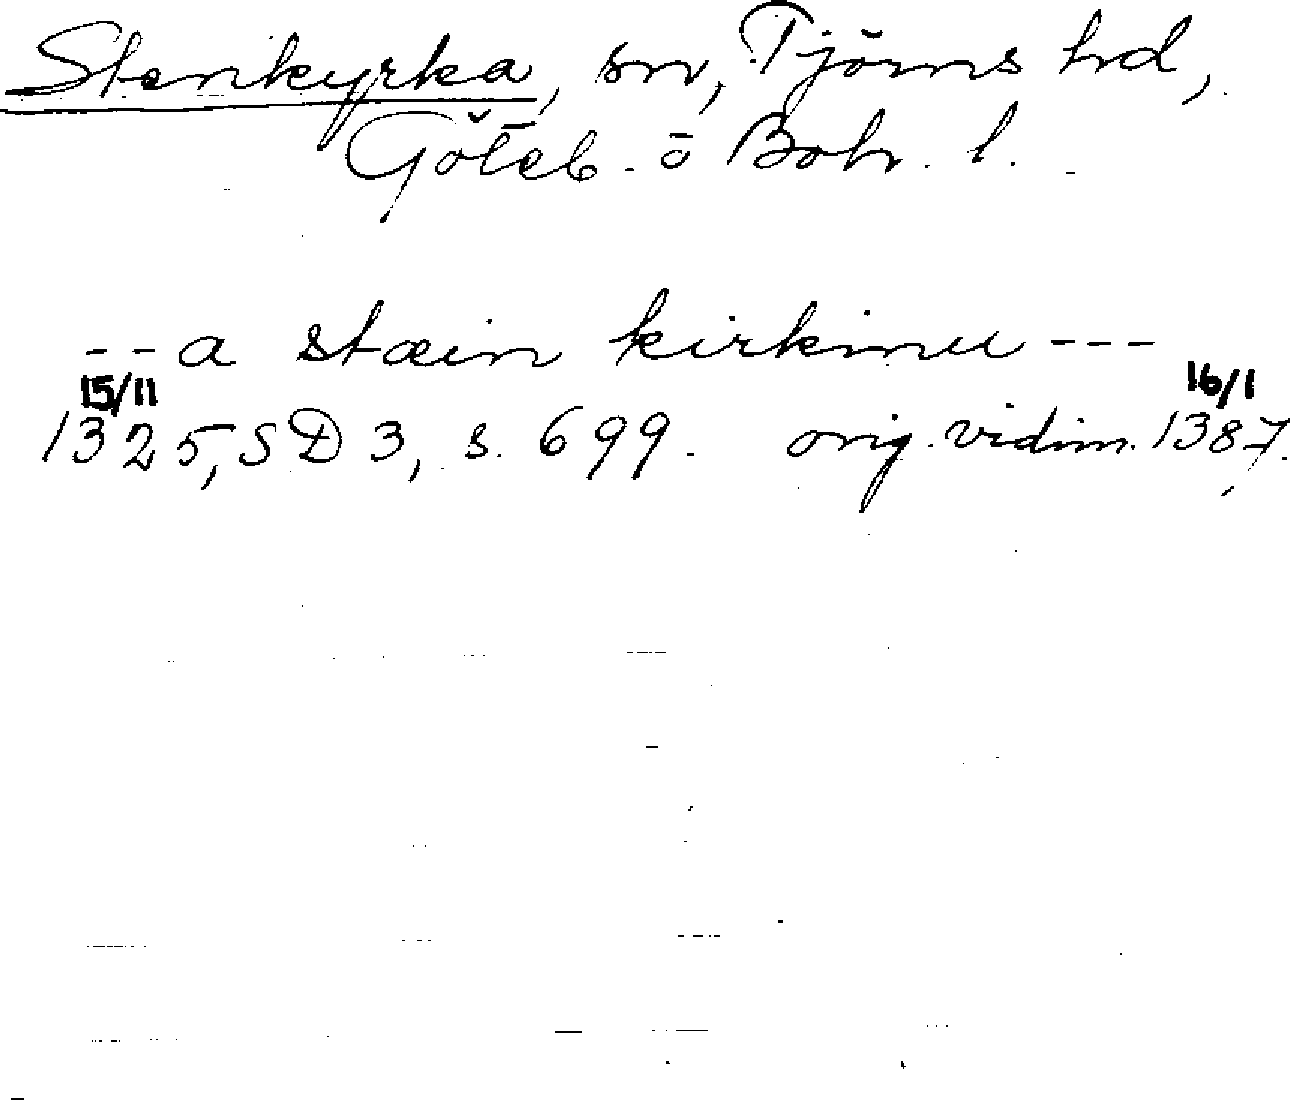 Stenkyrka, sn, Tjörns hd,
Göteb. o Boh. l.
- - a stæin kirkinu - - -
15/11 16/1
1325, SD 3, s. 699. orig. vidim. 1387.